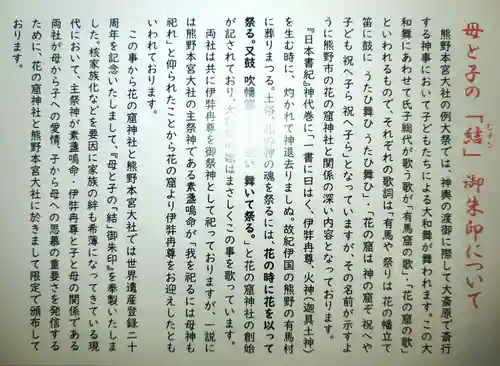 母と子の「結」御朱印について
むすび
熊野本宮大社の例大祭では、神輿の渡御に際して大斎原で斎行
する神事において子どもたちによる大和舞が舞われます。この大
和舞にあわせて氏子総代が歌う歌が「有馬窟の歌」、「花の窟の歌」
といわれるもので、それぞれの歌詞は「有馬や 祭りは 花の幡立て
笛に鼓に うたひ舞ひ うたひ舞ひ」、「花の窟は 神の窟ぞ 祝へや
子ども 祝へ子ら 祝へ子ら」となっていますが、その名前が示すよ
うに熊野市の花の窟神社と関係の深い内容となっております。
『日本書紀』神代巻に「一書に曰はく、伊弉冉尊、火神（迦具土神）
を生む時に、灼かれて神退去りましぬ。故紀伊国の熊野の有馬村
に葬りまつる。土俗、此の神の魂を祭るには、花の時に花を以って
祭る。又鼓 吹幡旗 い 舞いて祭る。」と花の窟神社の創始
が記されており、大 歌はまさしくこの事を歌っています。
両社は共に伊弉冉尊を御祭神として祀っておりますが、一説に
は熊野本宮大社の主祭神である素盞嗚尊が「我を祀るには母神も
祀れ」と仰られたことから花の窟より伊弉冉尊をお迎えしたとも
いわれております。
この事から花の窟神社と熊野本宮大社では世界遺産登録二十
周年を記念いたしまして、『母と子の「結」御朱印』を奉製いたしま
した。核家族化などを要因に家族の絆も希薄になってきている現
代において、主祭神が素盞嗚命・伊弉冉尊と子と母の関係である
両社が母から子への愛情、子から母への思慕の重要さを発信する
ために、花の窟神社と熊野本宮大社に於きまして限定で頒布して
おります。